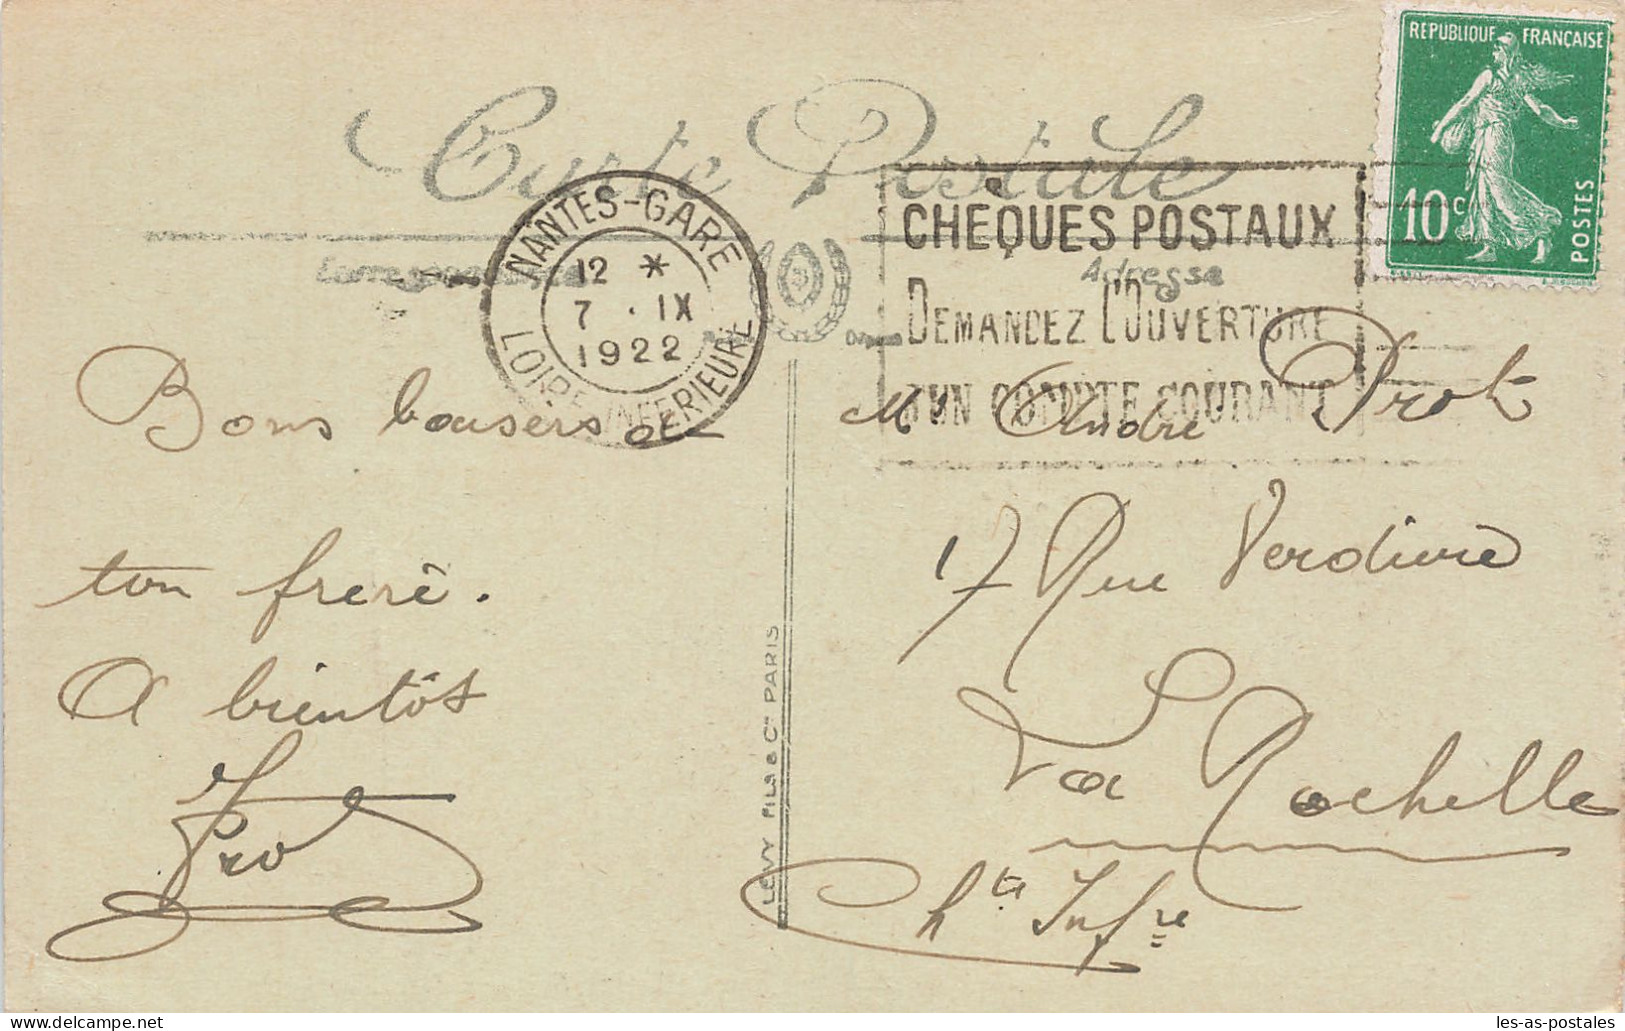 Carte Postale
REPUBLIQUE FRANÇAISE
10c
POSTES
NANTES-GARE
12 *
7 . IX
1922
LOIRE INFERIEURE
CHEQUES POSTAUX
DEMANDEZ L'OUVERTURE
D'UN COMPTE COURANT
Correspondance
Adresse
Bons baisers de
ton frère.
A bientôt
LEVY FILS & Cie PARIS
Mr André Prot
17 Rue Verdière
La Rochelle
Chte Infre
les-as-postales